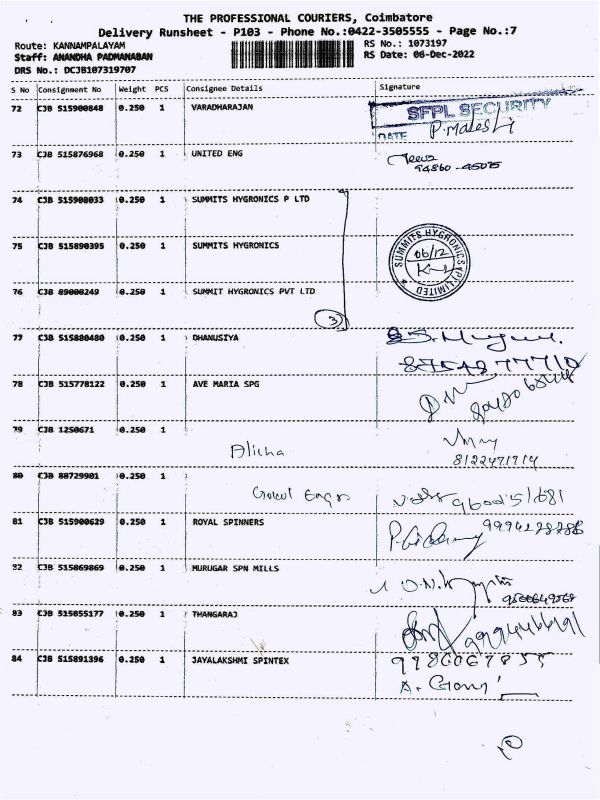 THE PROFESSIONAL COURIERS, Coimbatore
Delivery Runsheet - P103 - Phone No.:0422-3505555 - Page No.:7
Route: KANNAMPALAYAM RS No.: 1073197
Staff: ANANDHA PADMANABAN RS Date: 06-Dec-2022
DRS No.: DCJB107319707
S No Consignment No Weight PCS Consignee Details Signature
72 CJB 515900848 0.250 1 VARADHARAJAN SFPL SECURITY
DATE
73 CJB 515876968 0.250 1 UNITED ENG
94860-45075
74 CJB 515908033 0.250 1 SUMMITS HYGRONICS P LTD
75 CJB 515890395 0.250 1 SUMMITS HYGRONICS SUMMITS HYGRONICS (P) LIMITED
06/12
76 CJB 89000249 0.250 1 SUMMIT HYGRONICS PVT LTD
3
77 CJB 515880480 0.250 1 DHANUSIYA
78 CJB 515778122 0.250 1 AVE MARIA SPG
79 CJB 1250671 0.250 1
8122471714
80 CJB 88729901 0.250 1
81 CJB 515900629 0.250 1 ROYAL SPINNERS
82 CJB 515869869 0.250 1 MURUGAR SPN MILLS
83 CJB 515855177 0.250 1 THANGARAJ
84 CJB 515891396 0.250 1 JAYALAKSHMI SPINTEX